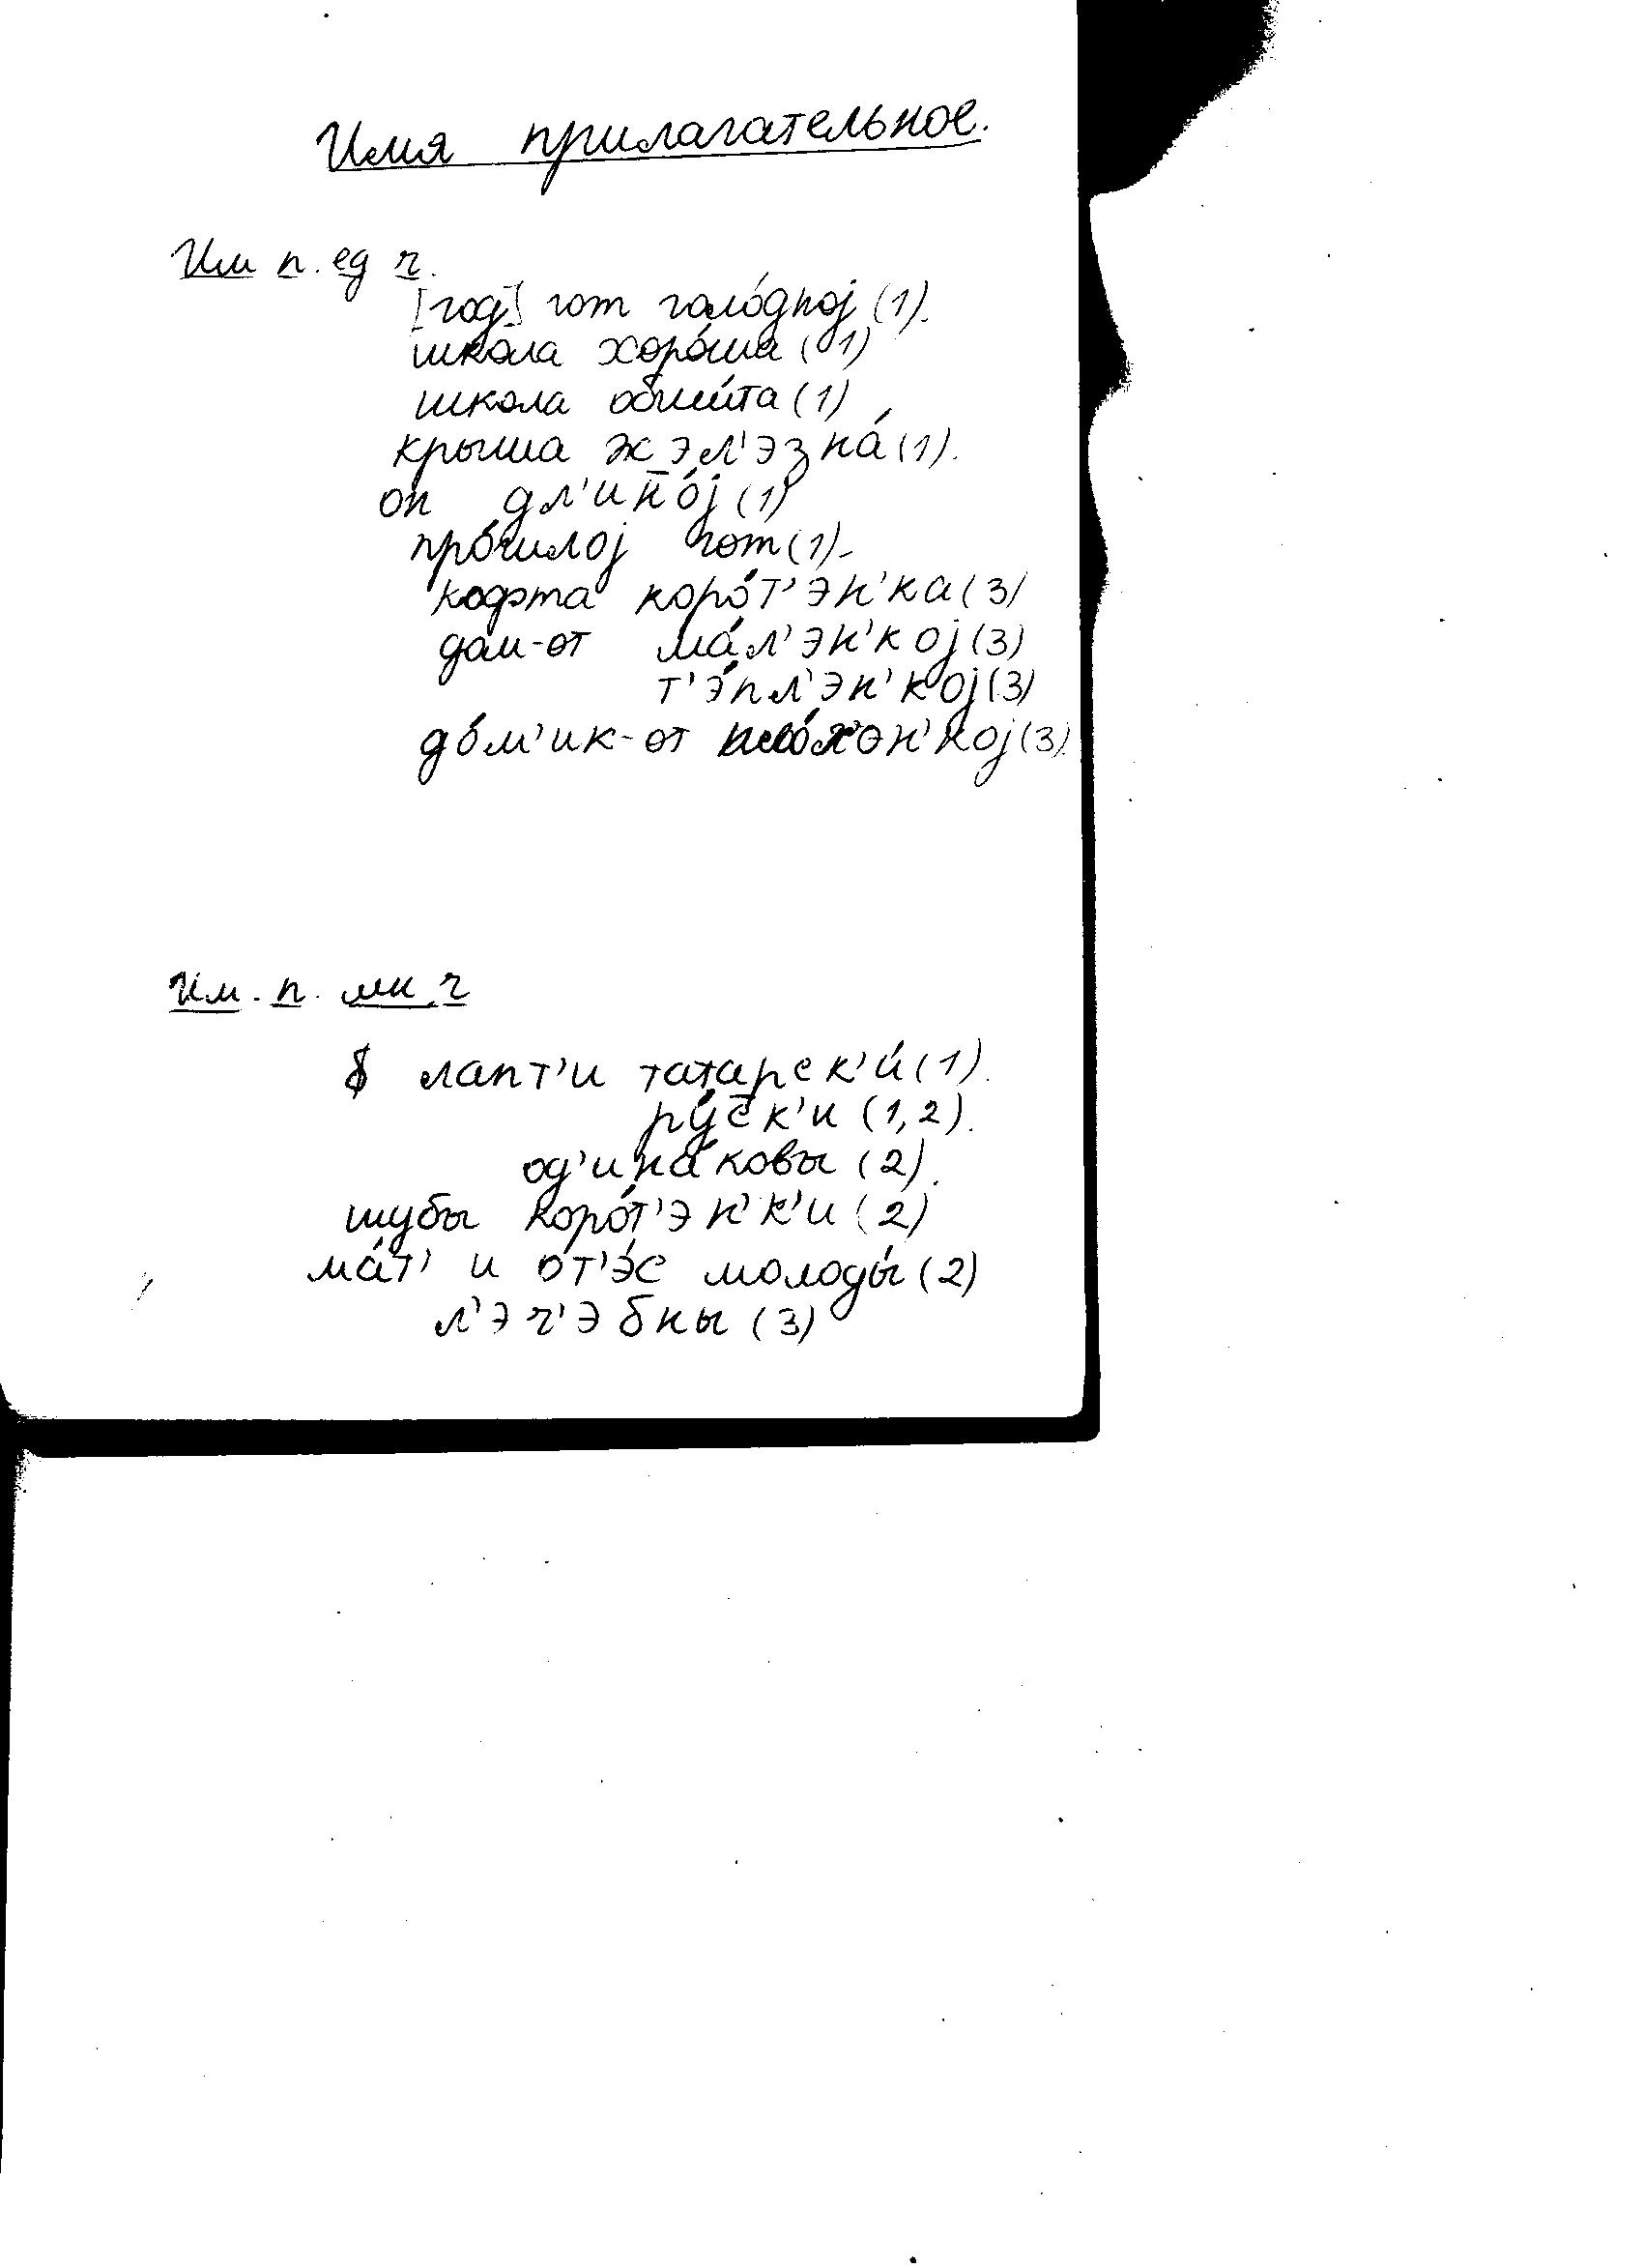 Имя прилагательное.
Им п. ед ч.
[год] гот голо́дној (1).
школа хоро́ша (1)
школа обши́та (1)
крыша жэл'эзна́ (1).
он дл'ин̄о́ј (1)
про́шлој гот (1).
кофта коро́т'эн'ка (3)
дом-от ма́л'эн'кој (3)
т'э́пл'эн'кој (3)
до́м'ик-от плохон'кој (3).
Им. п. мн. ч
лапт'и татарск'и́ (1).
ру́с̄к'и (1,2).
од'ина́ковы (2).
шубы коро́т'эн'к'и (2)
ма́т' и от'э́с молоды́ (2)
л'эч'эбны (3)